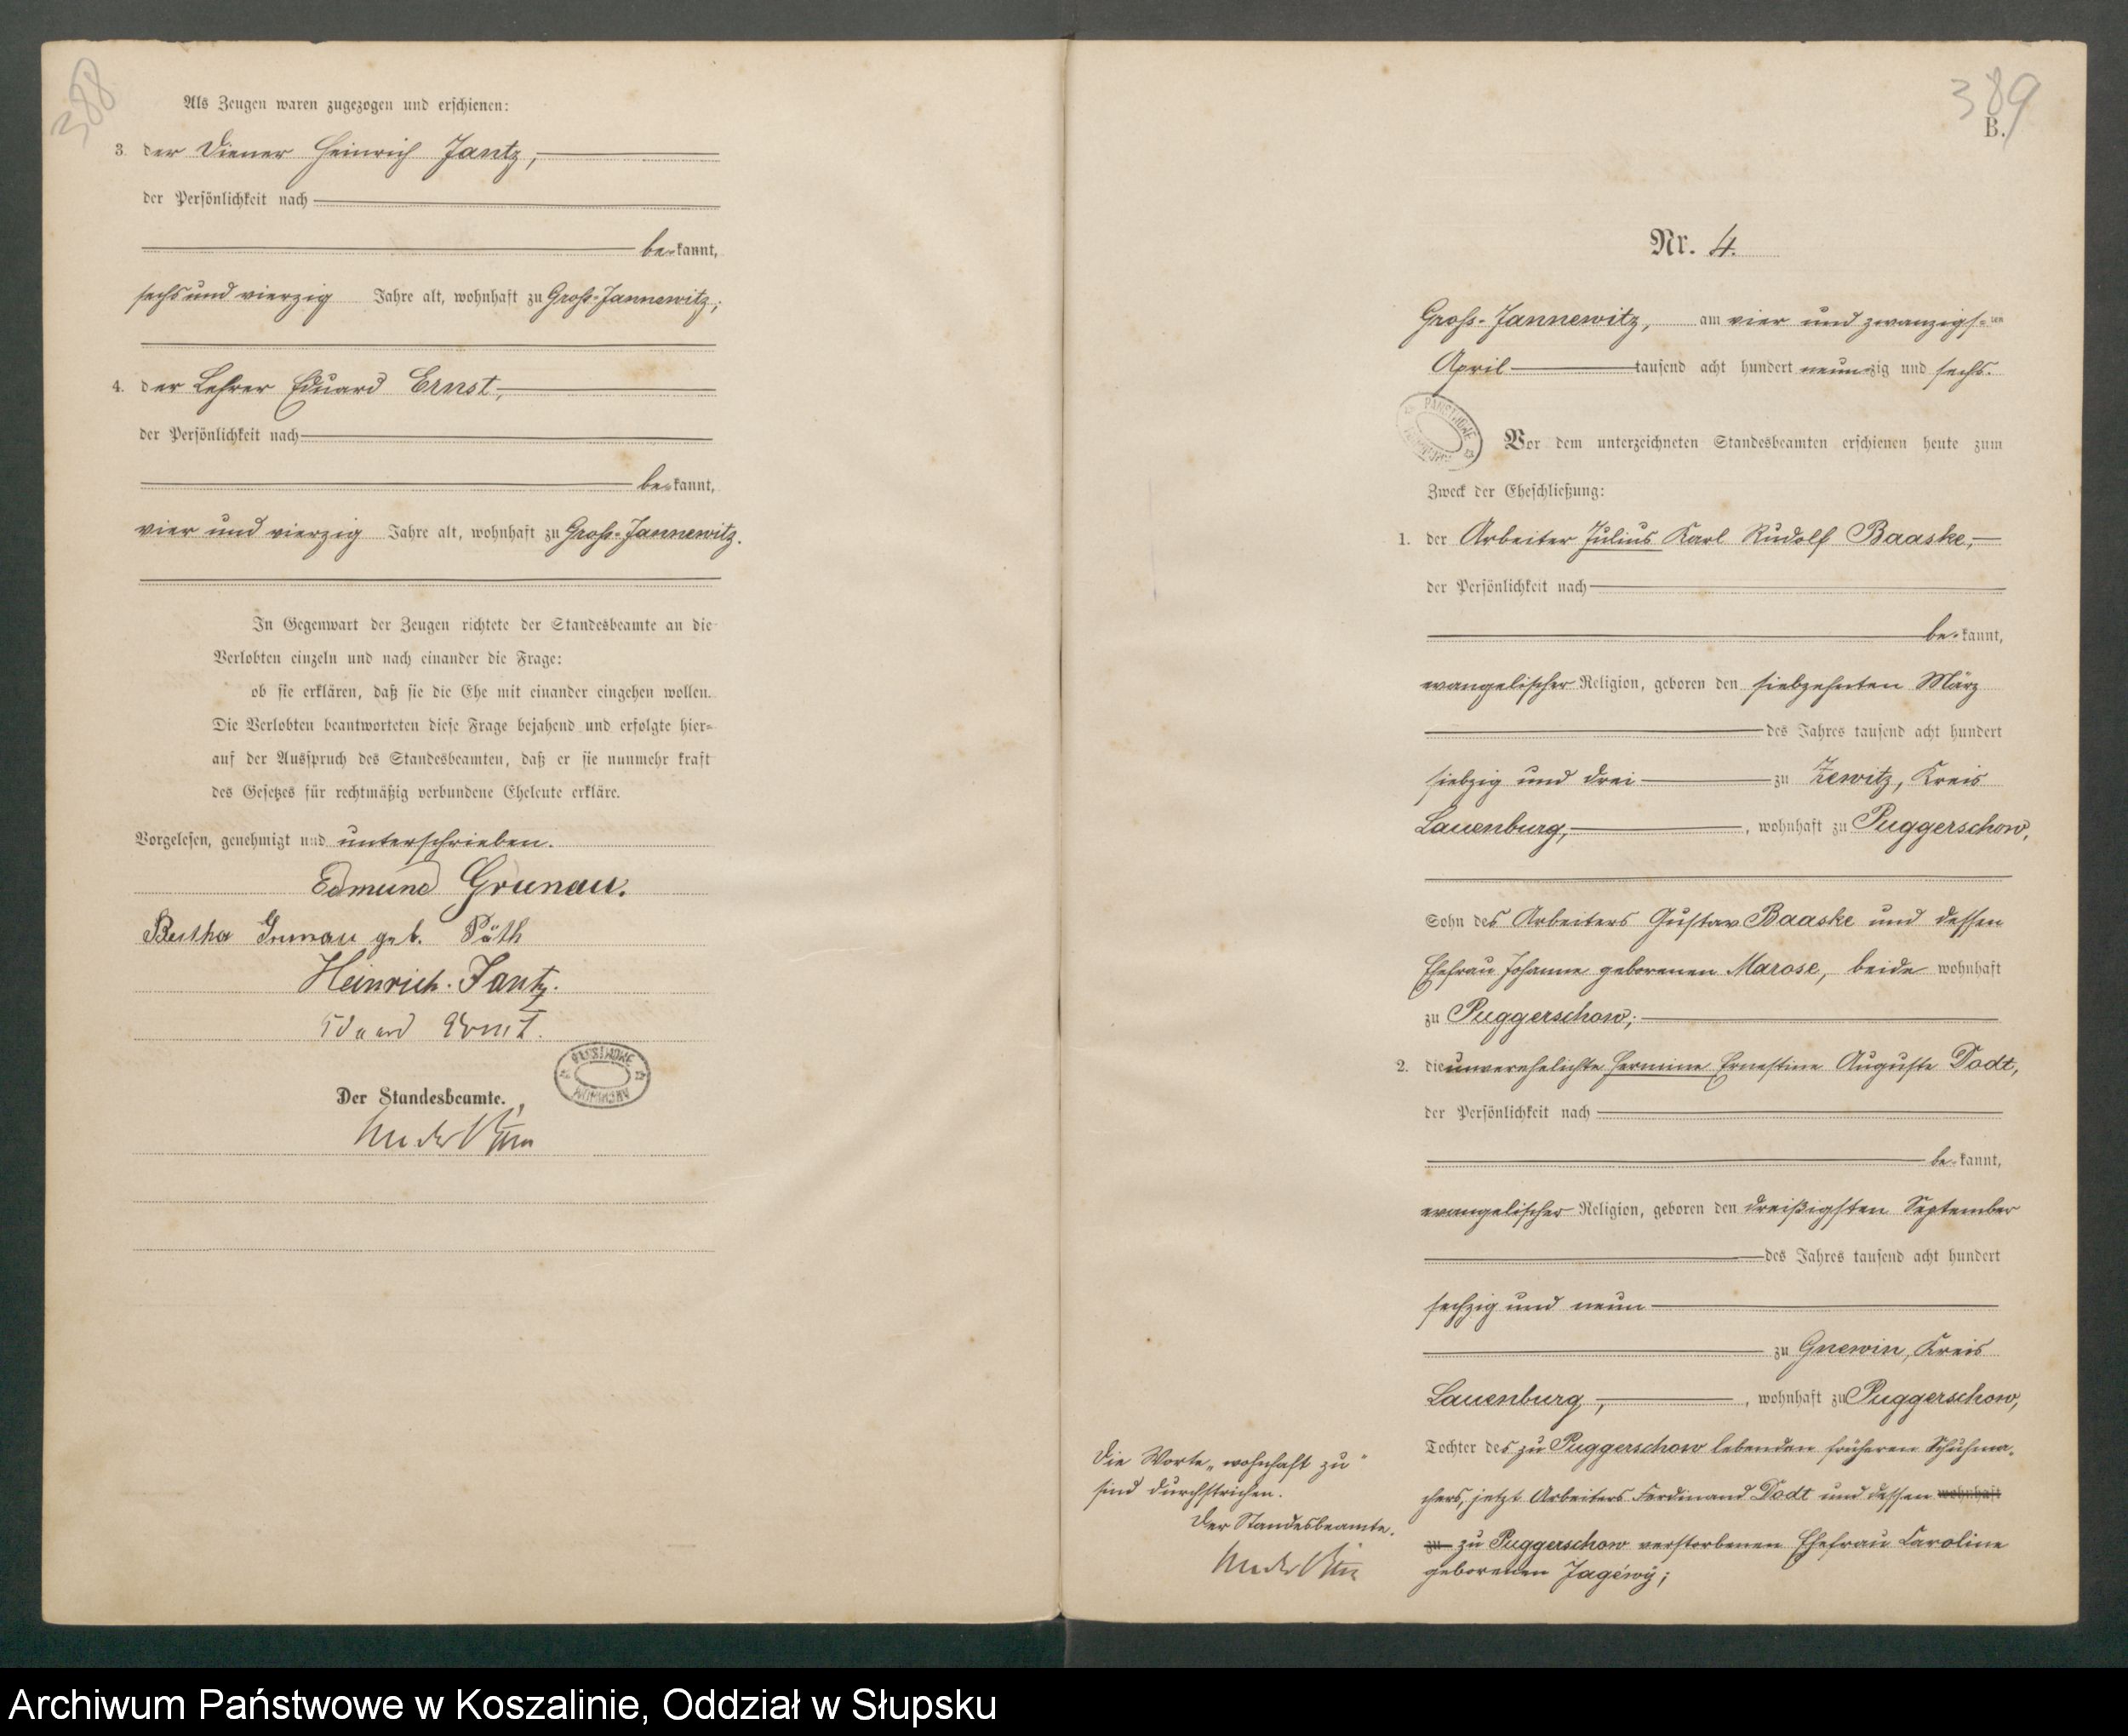 388
Als Zeugen waren zugezogen und erschienen:
3. der Diener Heinrich Jantz,
der Persönlichkeit nach
bekannt,
sechs und vierzig Jahre alt, wohnhaft zu Groß-Jannewitz;
4. der Lehrer Eduard Ernst,
der Persönlichkeit nach
bekannt,
vier und vierzig Jahre alt, wohnhaft zu Groß-Jannewitz.
In Gegenwart der Zeugen richtete der Standesbeamte an die
Verlobten einzeln und nach einander die Frage:
ob sie erklären, daß sie die Ehe mit einander eingehen wollen.
Die Verlobten beantworteten diese Frage bejahend und erfolgte hier=
auf der Ausspruch des Standesbeamten, daß er sie nunmehr kraft
des Gesetzes für rechtmäßig verbundene Eheleute erkläre.
Vorgelesen, genehmigt und unterschrieben.
Edmund Grunau.
Bertha Grunau geb. Päth
Heinrich Jantz.
Eduard Ernst.
Der Standesbeamte.
389
B.
Nr. 4.
Groß-Jannewitz, am vier und zwanzigsten
April tausend acht hundert neunzig und sechs.
Vor dem unterzeichneten Standesbeamten erschienen heute zum
Zweck der Eheschließung:
1. der Arbeiter Julius Karl Rudolf Baaske,
der Persönlichkeit nach
bekannt,
evangelischer Religion, geboren den siebzehnten März
des Jahres tausend acht hundert
siebzig und drei zu Zewitz, Kreis
Lauenburg, , wohnhaft zu Puggerschow,
Sohn des Arbeiters Gustav Baaske und dessen
Ehefrau Johanne geborenen Marose, beide wohnhaft
zu Puggerschow;
2. die unverehelichte Hermine Ernestine Auguste Dodt,
der Persönlichkeit nach
bekannt,
evangelischer Religion, geboren den dreißigsten September
des Jahres tausend acht hundert
sechzig und neun
zu Gnewin, Kreis
Lauenburg, , wohnhaft zu Puggerschow,
Tochter des zu Puggerschow lebenden früheren Schuhma-
chers, jetzt Arbeiters Ferdinand Dodt und dessen wohnhaft
zu zu Puggerschow verstorbenen Ehefrau Caroline
geborenen Jagéwÿ;
Die Worte „wohnhaft zu"
sind durchstrichen.
Der Standesbeamte.
PAŃSTWOWE
ARCHIWUM
Archiwum Państwowe w Koszalinie, Oddział w Słupsku